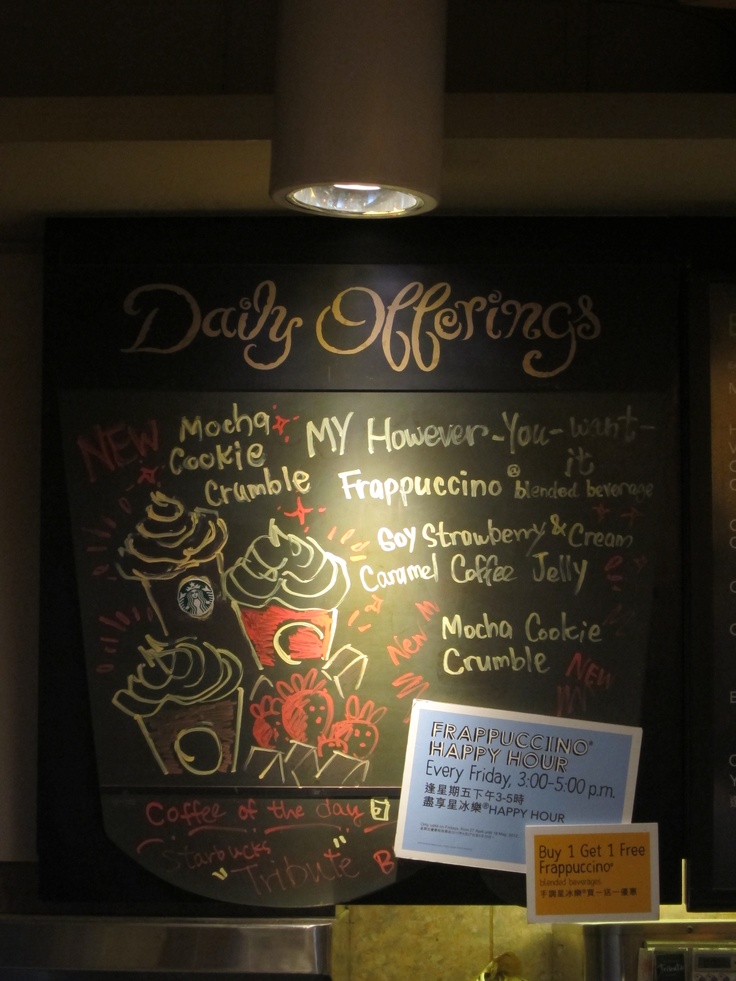 Daily Offerings
NEW
Mocha
Cookie
Crumble
MY However-You-want-
it
Frappuccino® blended beverage
Soy Strawberry & Cream
Caramel Coffee Jelly
New
Mocha Cookie
Crumble
NEW
Coffee of the day
Starbucks
"Tribute" B
FRAPPUCCINO®
HAPPY HOUR
Every Friday, 3:00-5:00 p.m.
逢星期五下午3-5時
盡享星冰樂®HAPPY HOUR
Buy 1 Get 1 Free
Frappuccino®
blended beverages
手調星冰樂®買一送一優惠